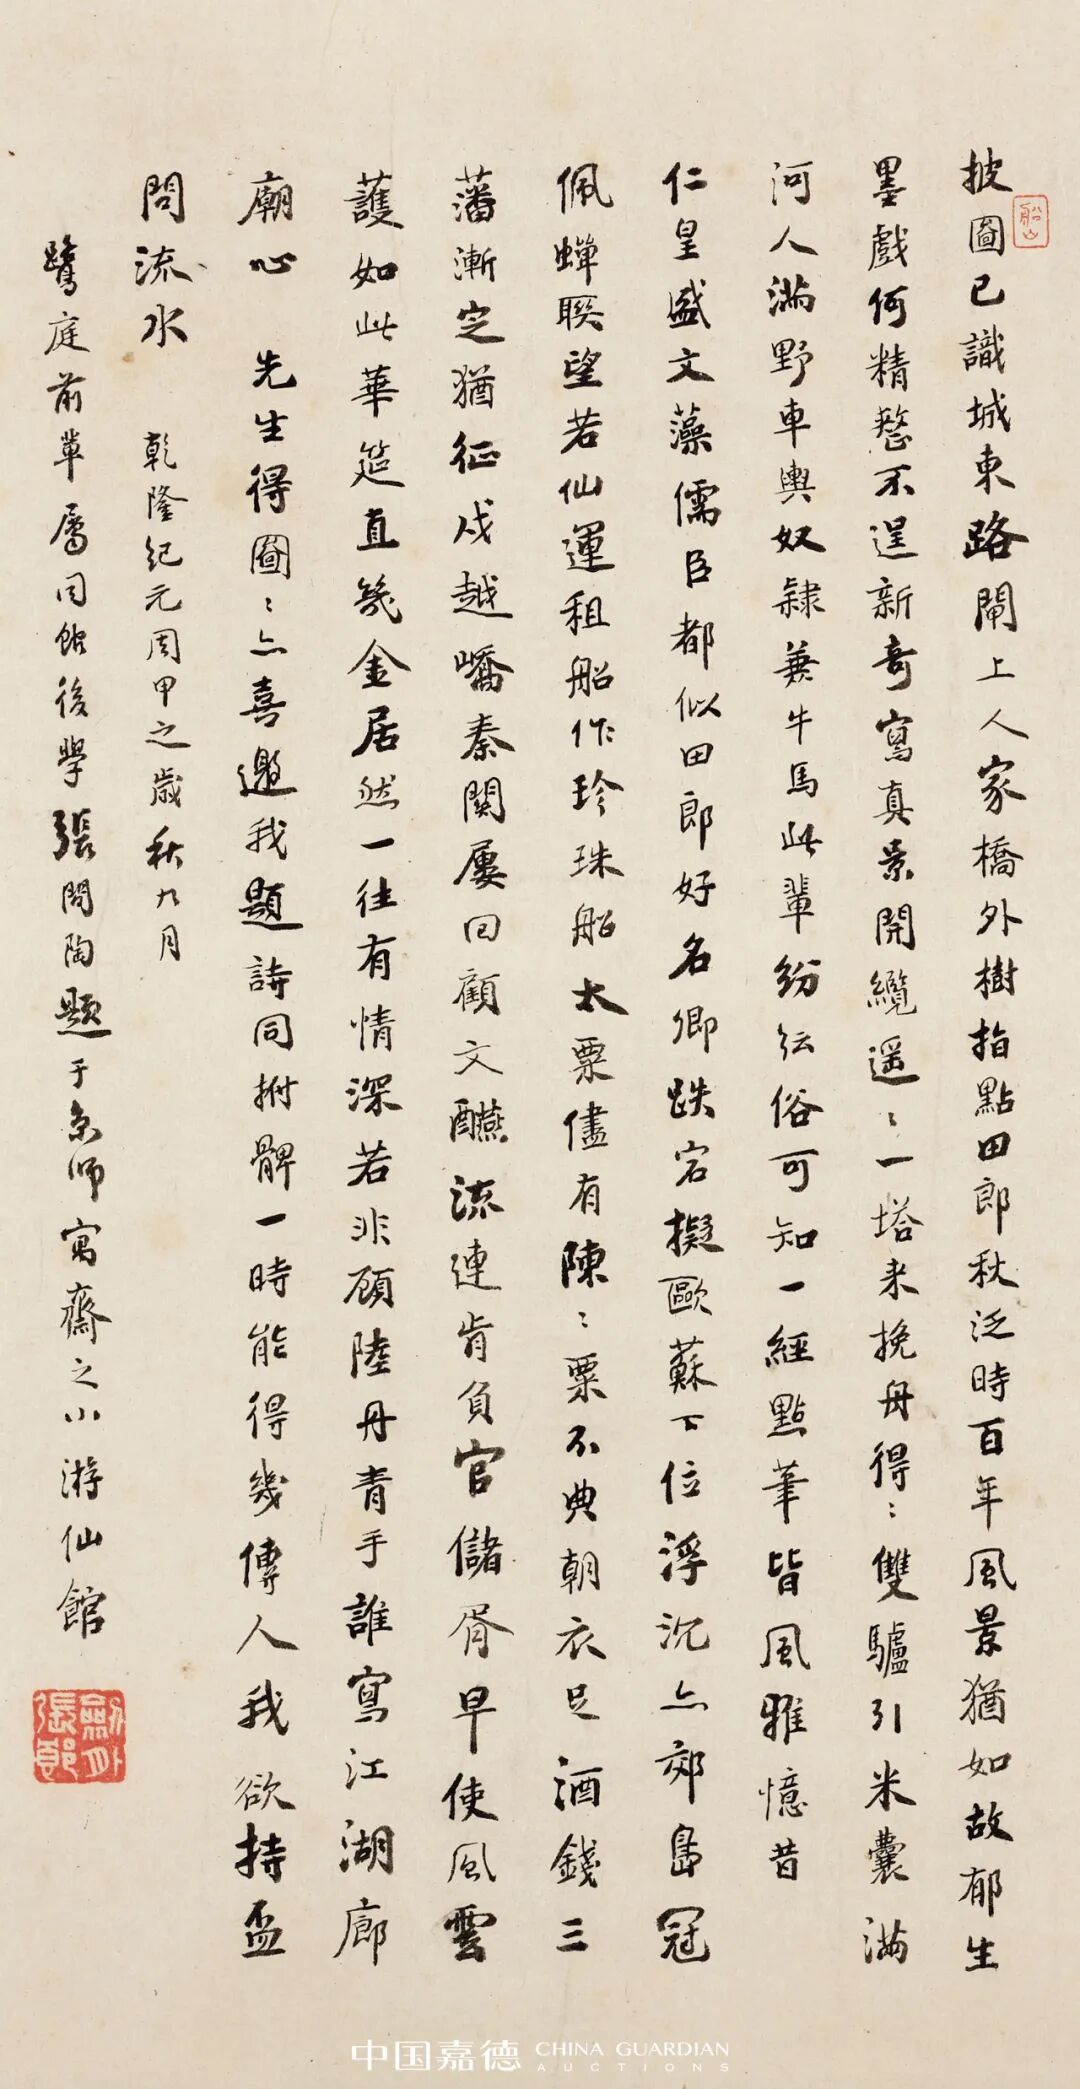 船山
披圖已識城東路閘上人家橋外樹指點田郎秋泛時百年風景猶如故郁生
墨戲何精整不逞新奇寫真景開纜遥〻一塔來挽舟得〻雙驢引米囊滿
河人滿野車輿奴隸兼牛馬此輩紛紜俗可知一經點筆皆風雅憶昔
仁皇盛文藻儒臣都似田郎好名卿跌宕擬歐蘇下位浮沉亦郊島冠
佩蟬聯望若仙運租船作珍珠船太粟儘有陳〻粟不典朝衣足酒錢三
藩漸定猶征戍越嶠秦關屢回顧文醼流連肯負官儲胥早使風雲
護如此華筵直幾金居然一往有情深若非顧陸丹青手誰寫江湖廊
廟心 先生得圖〻亦喜邀我題詩同拊髀一時能得幾傳人我欲持盃
問流水 乾隆紀元周甲之歲秋九月
鷺庭前輩屬同館後學張問陶題于京師寓齋之小游仙館
中国嘉德 CHINA GUARDIAN AUCTIONS